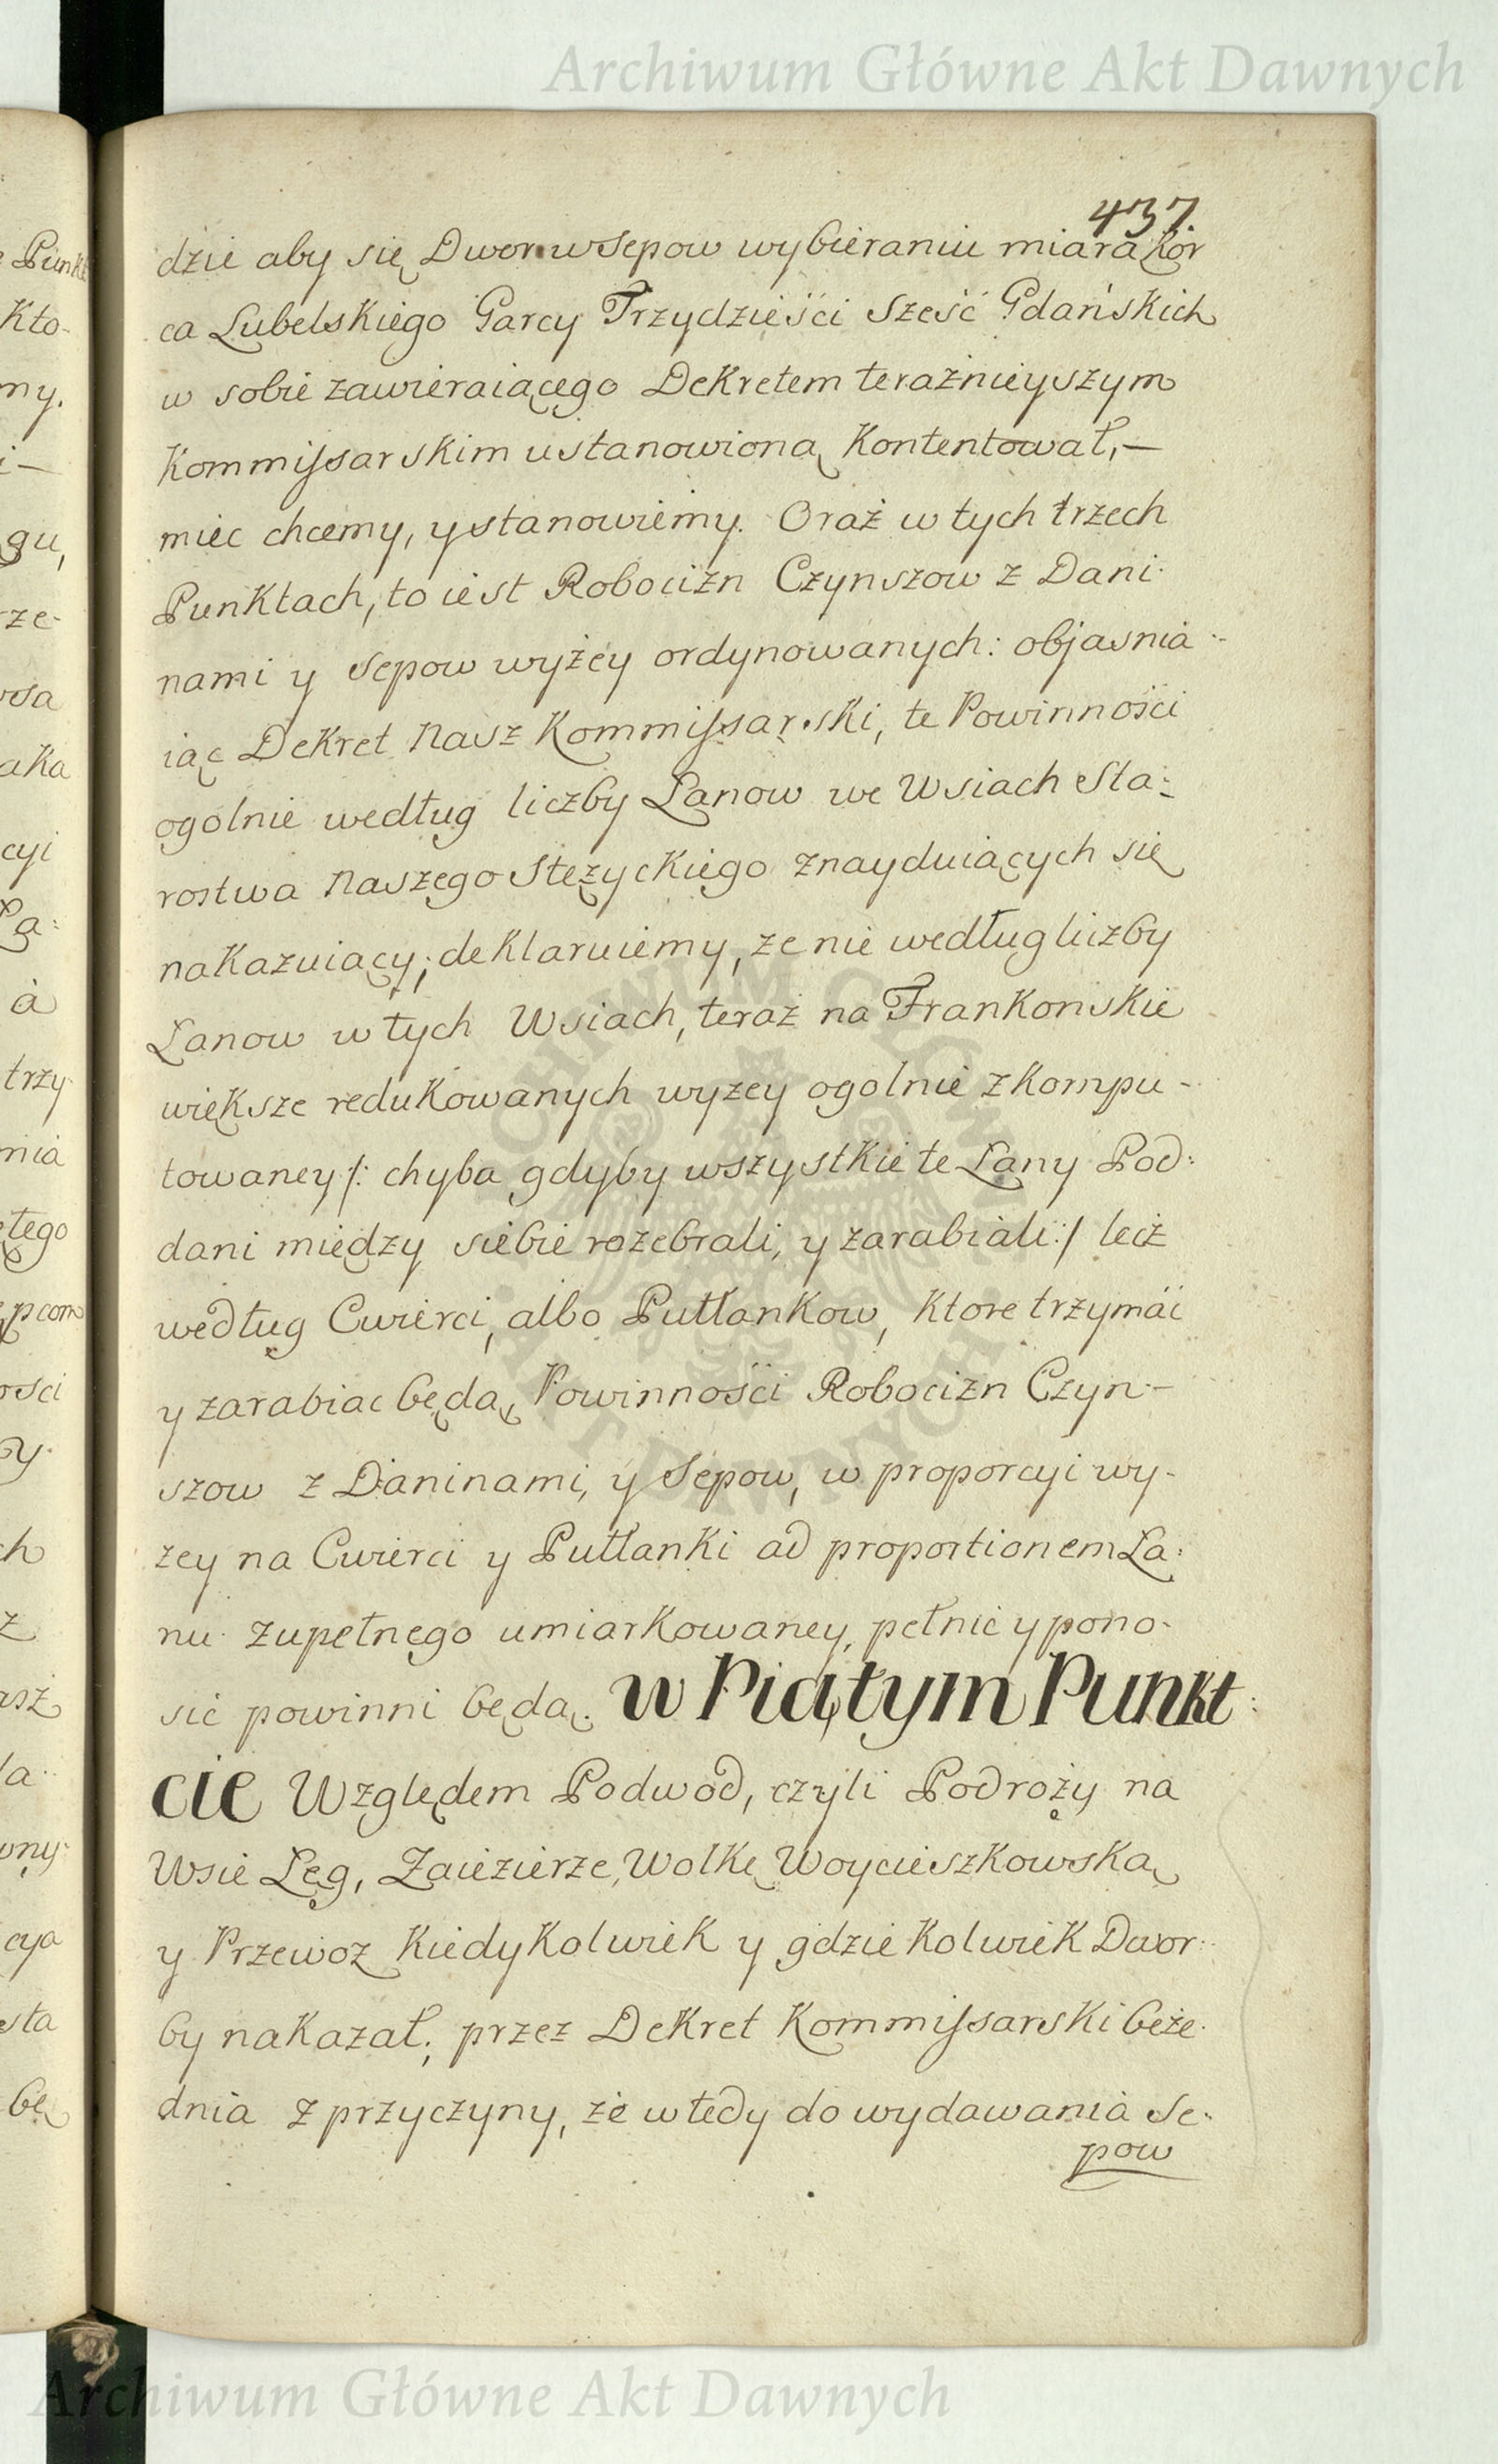 Archiwum Główne Akt Dawnych
437.
dzie aby się Dwor w Sepow wybieraniu miarą Kor
ca Lubelskiego Garcy Trzydzieści Sześć Gdańskich
w sobie zawieraiącego Dekretem teraźnieyszym
Kommissarskim ustanowioną Kontentował, —
miec chcemy, y stanowiemy. Oraż w tych trzech
Punktach, to iest Robocizn Czynszow z Dani-
nami y Sepow wyżey ordynowanych: objasnia-
iąc Dekret Nasz Kommissarski, te Powinności
ogolnie według liczby Łanow we Wsiach Sta-
rostwa Naszego Stężyckiego znayduiących się
nakazuiący; deklaruiemy, że nie według liczby
Łanow w tych Wsiach, teraż na Frankońskie
większe redukowanych wyzey ogolnie zkompu-
towaney /: chyba gdyby wszystkie te Łany Pod:
dani między siebie rozebrali, y zarabiali :/ lecż
według Cwierci, albo Putłankow, ktore trzymać
y zarabiac będą, Powinności Robocizn Czyn-
szow z Daninami, y Sepow, w proporcyi wy-
żey na Cwierci y Putłanki ad proportionem Ła:
nu zupełnego umiarkowaney, pełnić y pono-
sić powinni będą. w Piątym Punkt:
cie Względem Podwod, czyli Podroży na
Wsie Łęg, Zaiezierze, Wolkę Woycieszkowską
y Przewoz kiedykolwiek y gdziekolwiek Dwor
by nakazał; przez Dekret Kommissarski beże-
dnia z przyczyny, że wtedy do wydawania Se-
pow
Archiwum Główne Akt Dawnych